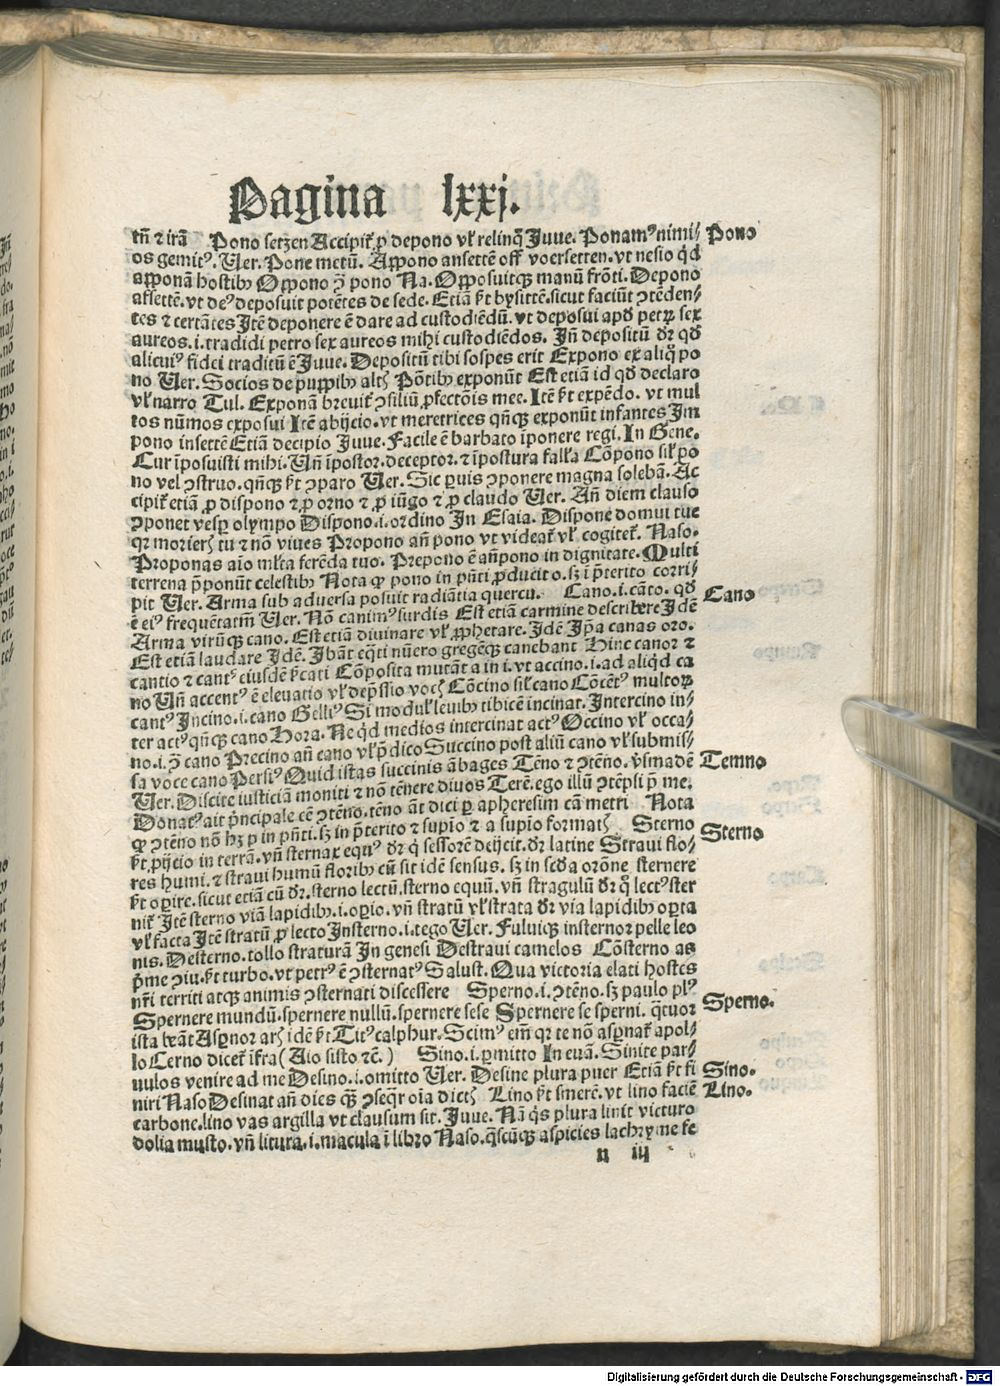 Pagina lxxj.
tñ ⁊ irã Pono setzen Accipit̃ ꝓ depono vl̃ relinq̃ Juue. Ponamꝰ nimi⸗ Pono
os gemitꝰ. Uer. Pone metũ. Appono ansettẽ off voersetten. vt nesio q̃d
apponã hostibꝫ Oppono .i. ↄ̃ pono Na. Opposuitqꝫ manũ frõti. Depono
affettẽ. vt deꝰ deposuit potẽtes de sede. Etiã ħt bysittẽ. sicut faciũt ↄtẽden⸗
tes ⁊ certãtes Itẽ deponere ẽ dare ad custodiẽdũ. vt deposui apđ petrꝫ sex
aureos .i. tradidi petro sex aureos mihi custodiẽdos. Jñ depositũ đr qđ
alicuiꝰ fidei traditũ ẽ Juue. Depositũ tibi sospes erit Expono ex aliq̊ po
no Uer. Socios de puppibꝫ altꝭ Põtibꝫ exponũt Est etiã id qđ declaro
vl̃ narro Tul. Exponã breuit̃ ↄsiliũ ꝓfectõis mee. Itẽ ħt expẽdo. vt mul
tos nũmos exposui Itẽ abijcio. vt meretrices qñqꝫ exponũt infantes Im
pono insettẽ Etiã decipio Juue. Facile ẽ barbato ĩponere regi. In Gene.
Cur ĩposuisti mihi. Uñ ĩpostor. deceptor. ⁊ ĩpostura falla Cõpono sil̃ po
no vel ↄstruo. qñqꝫ ħt ↄparo Uer. Sic ꝑuis ↄponere magna solebã. Ac
cipit̃ etiã ꝓ dispono ⁊ ꝓ orno ⁊ ꝓ iũgo ⁊ ꝓ claudo Uer. Añ diem clauso
ↄponet vesp̱ olympo Dispono .i. ordino In Esaia. Dispone domui tue
qꝛ morierꝭ tu ⁊ nõ viues Propono añ pono vt videat̃ vl̃ cogitet̃. Naso.
Proponas aĩo ml̃ta ferẽda tuo. Prepono ẽ añpono in dignitate. Multi
terrena p̃ponũt celestibꝫ Nota ꝙ pono in p̃nti ꝓducit o. sꝫ i p̃terito corri⸗
pit Uer. Arma sub aduersa posuit radiãtia quercu. Cano .i. cãto. qđ Cano
ẽ eiꝰ frequẽtatm̃ Uer. Nõ canimꝰ surdis Est etiã carmine describere Idẽ
Arma virũqꝫ cano. Est etiã diuinare vl̃ ꝓphetare. Idẽ Ip̃a canas oro.
Est etiã laudare Idẽ. Ibãt eq̃ti nũero gregẽqꝫ canebant Hinc canor ⁊
cantio ⁊ cantꝰ eiusdẽ ħcati Cõposita mutãt a in i. vt accino .i. ad aliqđ ca
no Uñ accentꝰ ẽ eleuatio vl̃ dep̃ssio vocꝭ Cõcino sil̃ cano Cõcẽtꝰ multoꝝ
cantꝰ Incino .i. cano Gelliꝰ Si modul̃ leuibꝫ tibicẽ incinat. Intercino in⸗
ter actꝰ qñqꝫ cano Hora. Ne qđ medios intercinat actꝰ Occino vl̃ occa⸗
no .i. ↄ̃ cano Precino añ cano vl̃ p̃dico Succino post aliũ cano vl̃ submis⸗
sa voce cano Persiꝰ Quid istas succinis ãbages Tẽno ⁊ ↄtẽno. v̾smadẽ Temno
Uer. Discite iusticiã moniti ⁊ nõ tẽnere diuos Terẽ. ego illũ ↄtẽpsi p̃ me.
Donatꝰ ait p̃ncipale eẽ ↄtẽno. tẽno ãt dici ꝑ apheresim cã metri Nota
ꝙ ↄtẽno nõ hꝫ p in p̃nti. sꝫ in p̃terito ⁊ supĩo ⁊ a supĩo formatꝭ Sterno Sterno
ħt ꝓijcio in terrã. vñ sternax equꝰ đr q̇ sessorẽ deijcit. đr latine Straui flo⸗
res humi. ⁊ straui humũ floribꝫ cũ sit idẽ sensus. sꝫ in scđa orõne sternere
ħt oꝑire. sicut etiã cũ đr. sterno lectũ. sterno equũ. vñ stragulũ đr q̊ lectꝰ ster
nit̃ Itẽ sterno viã lapidibꝫ .i. oꝑio. vñ stratũ vl̃ strata đr via lapidibꝫ oꝑta
vl̃ facta Itẽ stratũ ꝓ lecto Insterno .i. tego Uer. Fuluiqꝫ insternor pelle leo
nis. Desterno. tollo straturã In genesi Destraui camelos Cõsterno as
p̃me ↄiu. ħt turbo. vt petrꝰ ẽ ↄsternatꝰ Salust. Qua victoria elati hostes
nr̃i territi atqꝫ animis ↄsternati discessere Sperno .i. ↄtẽno. sꝫ paulo plꝰ Sperno.
Spernere mundũ. spernere nullũ. spernere sese Spernere se sperni. q̃tuor
ista beãt Asꝑnor arꝭ idẽ ħt Titꝰ calphur. Scimꝰ em̃ qꝛ te nõ asꝑnat̃ apol⸗
lo Cerno dicet̃ ĩfra (Aio sisto ⁊c̃.) Sino .i. ꝑmitto In euã. Sinite par⸗
uulos venire ad me Desino .i. omitto Uer. Desine plura puer Etiã ħt fi Sino.
niri Naso Desinat añ dies q̃ꝫ ↄseqr oĩa dictꝭ Lino ħt smerẽ. vt lino faciẽ Lino.
carbone. lino vas argilla vt clausum sit. Juue. Nã q̇s plura linit victuro
dolia musto. vñ litura .i. macula ĩ libro Naso. q̃scũqꝫ aspicies lachryme fe
n iij
Digitalisierung gefördert durch die Deutsche Forschungsgemeinschaft - DFG